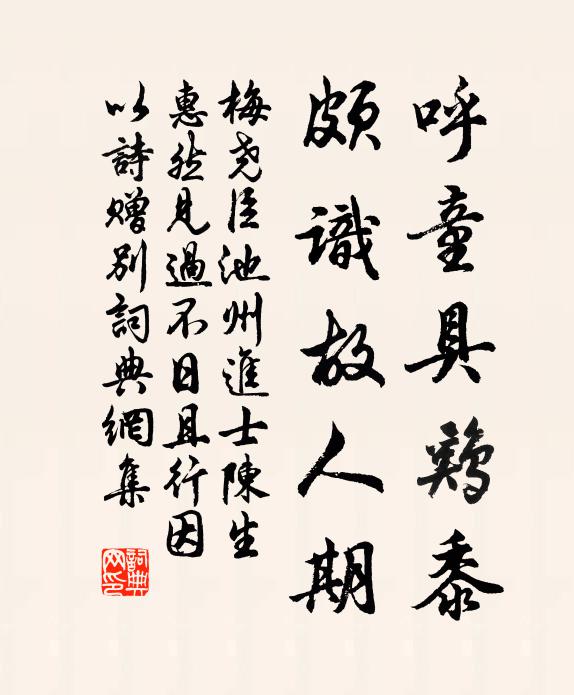 呼童具鷄黍
頗識故人期
梅尧臣池州進士陳生
惠然見過不日且行因
以詩赠别詞典網集
詞典
网印